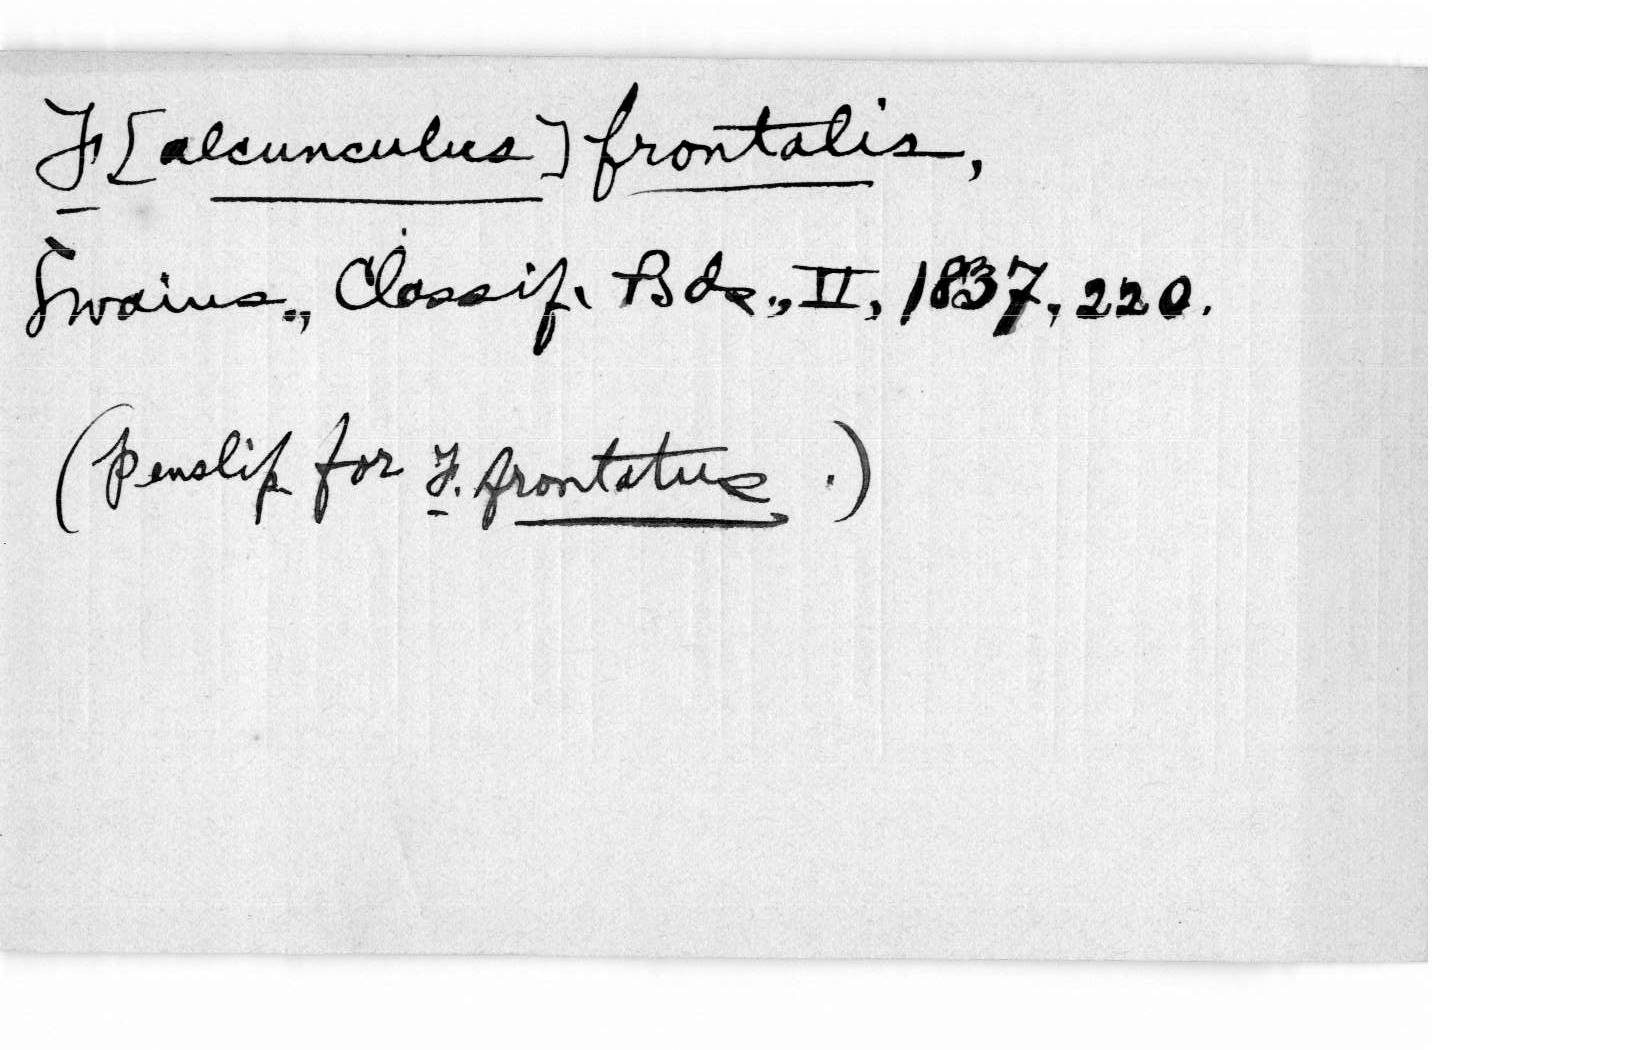 F[alcunculus] frontalis,
Swains., Classif. Bds., II, 1837, 220.
(Penslip for F. frontatus.)